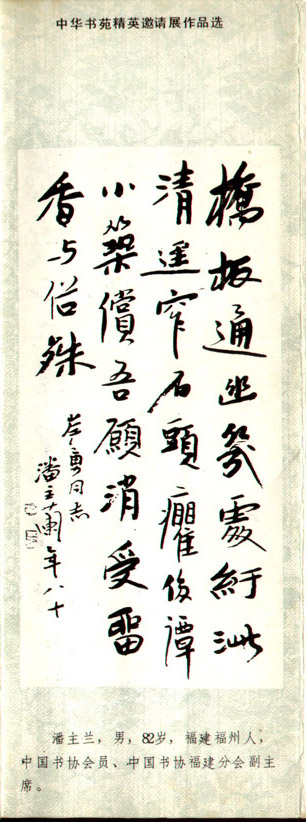 中华书苑精英邀请展作品选
橋板通幽幾處紆
清窄石頭癯後譚
小築償吾願消受留
香与俗殊
勇同志
潘主蘭年八十
潘主兰，男，82岁，福建福州人，
中国书协会员、中国书协福建分会副主
席。